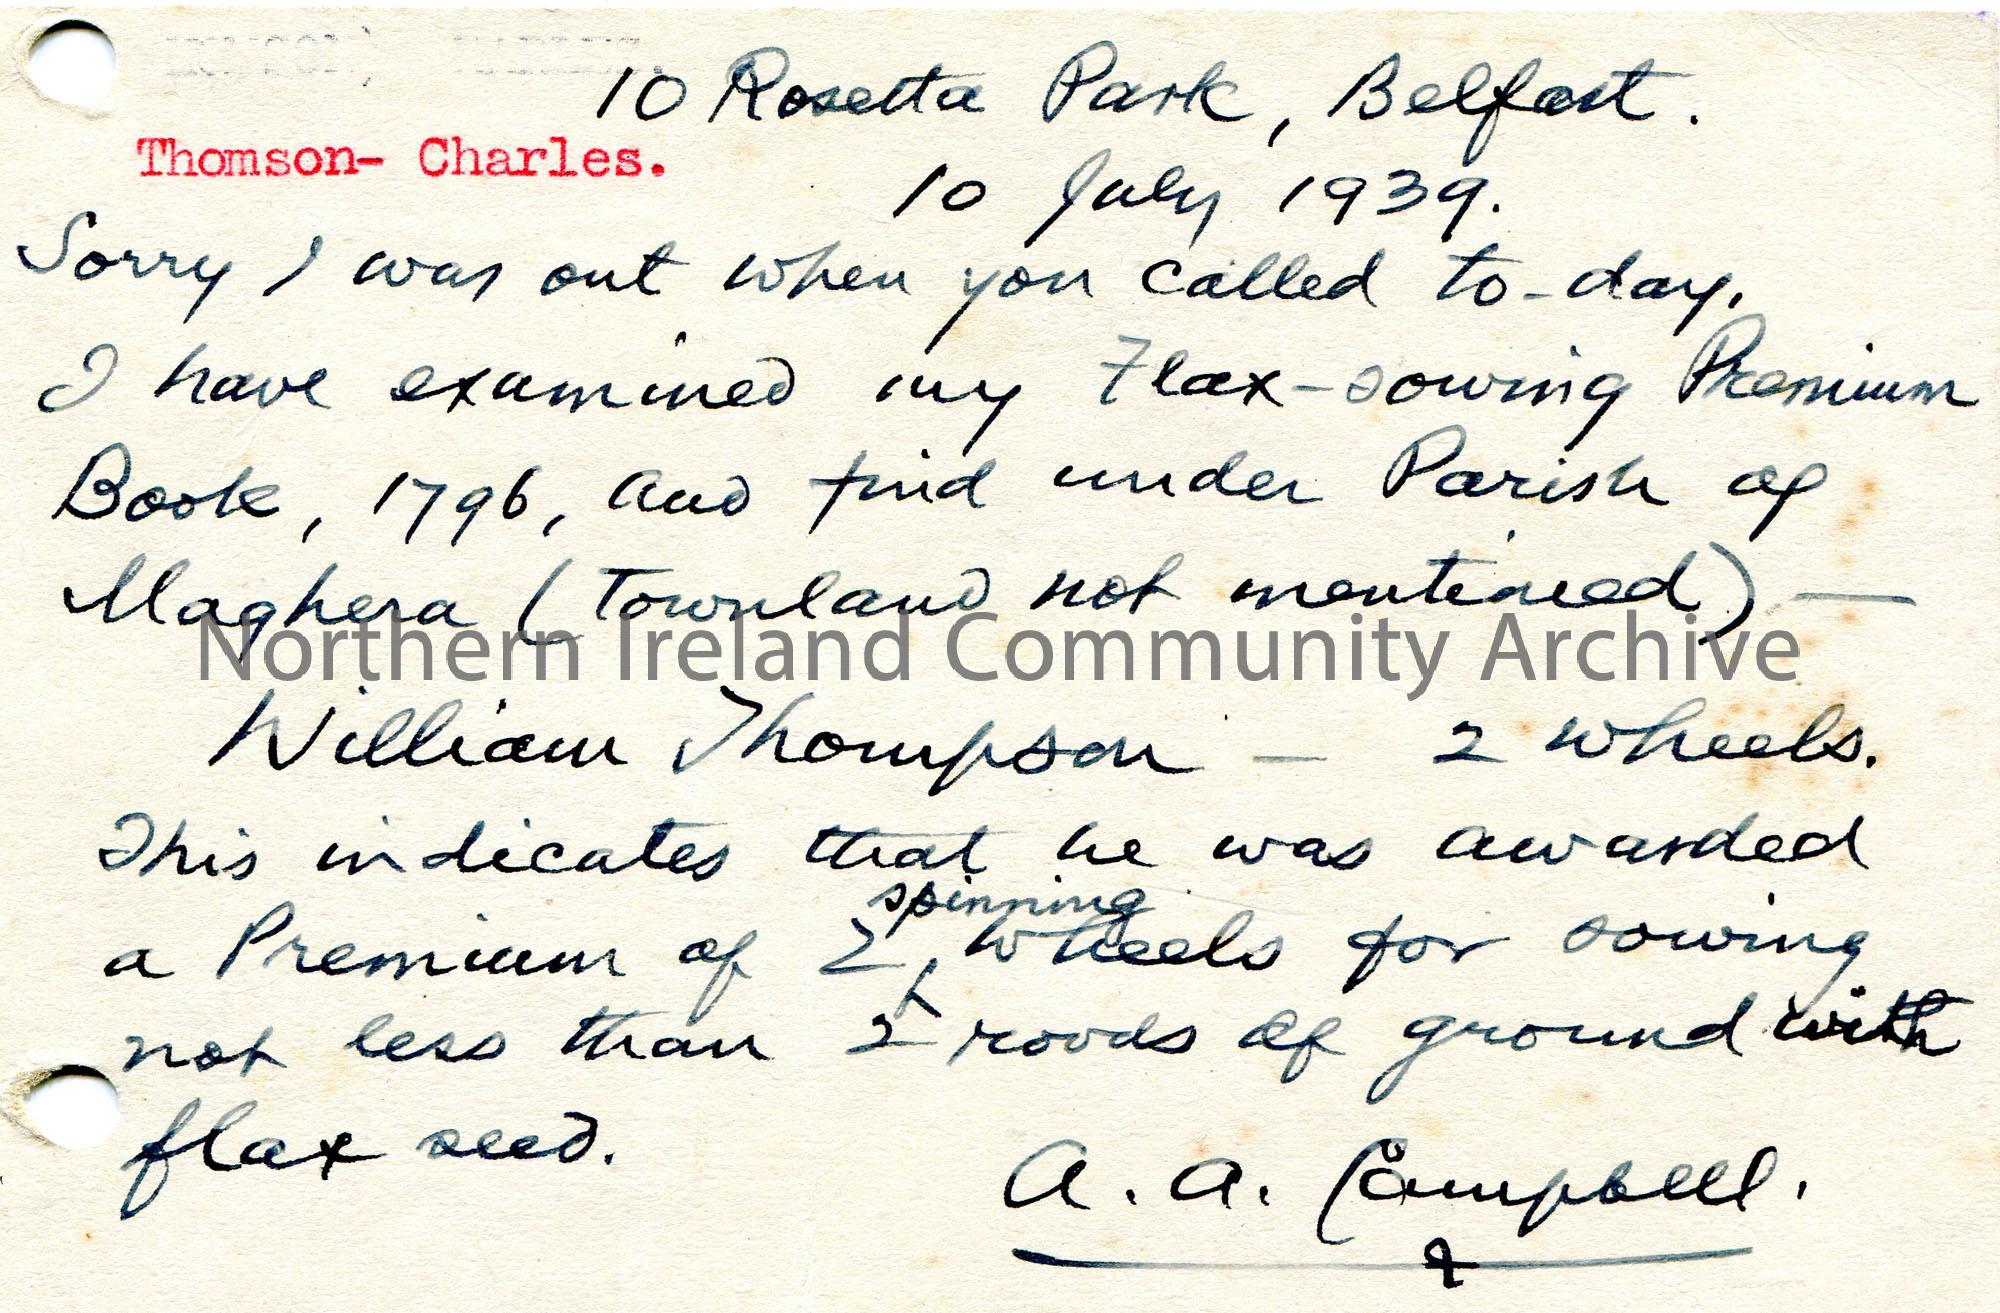 10 Rosetta Park, Belfast.
Thomson- Charles.
10 July 1939.
Sorry I was out when you called to-day.
I have examined my Flax-sowing Premium
Book, 1796, and find under Parish of
Maghera (Townland not mentioned) —
Northern Ireland Community Archive
William Thompson — 2 wheels.
This indicates that he was awarded
spinning
a Premium of 2 wheels for sowing
not less than 2 roods of ground with
flax seed.
A. A. Campbell.